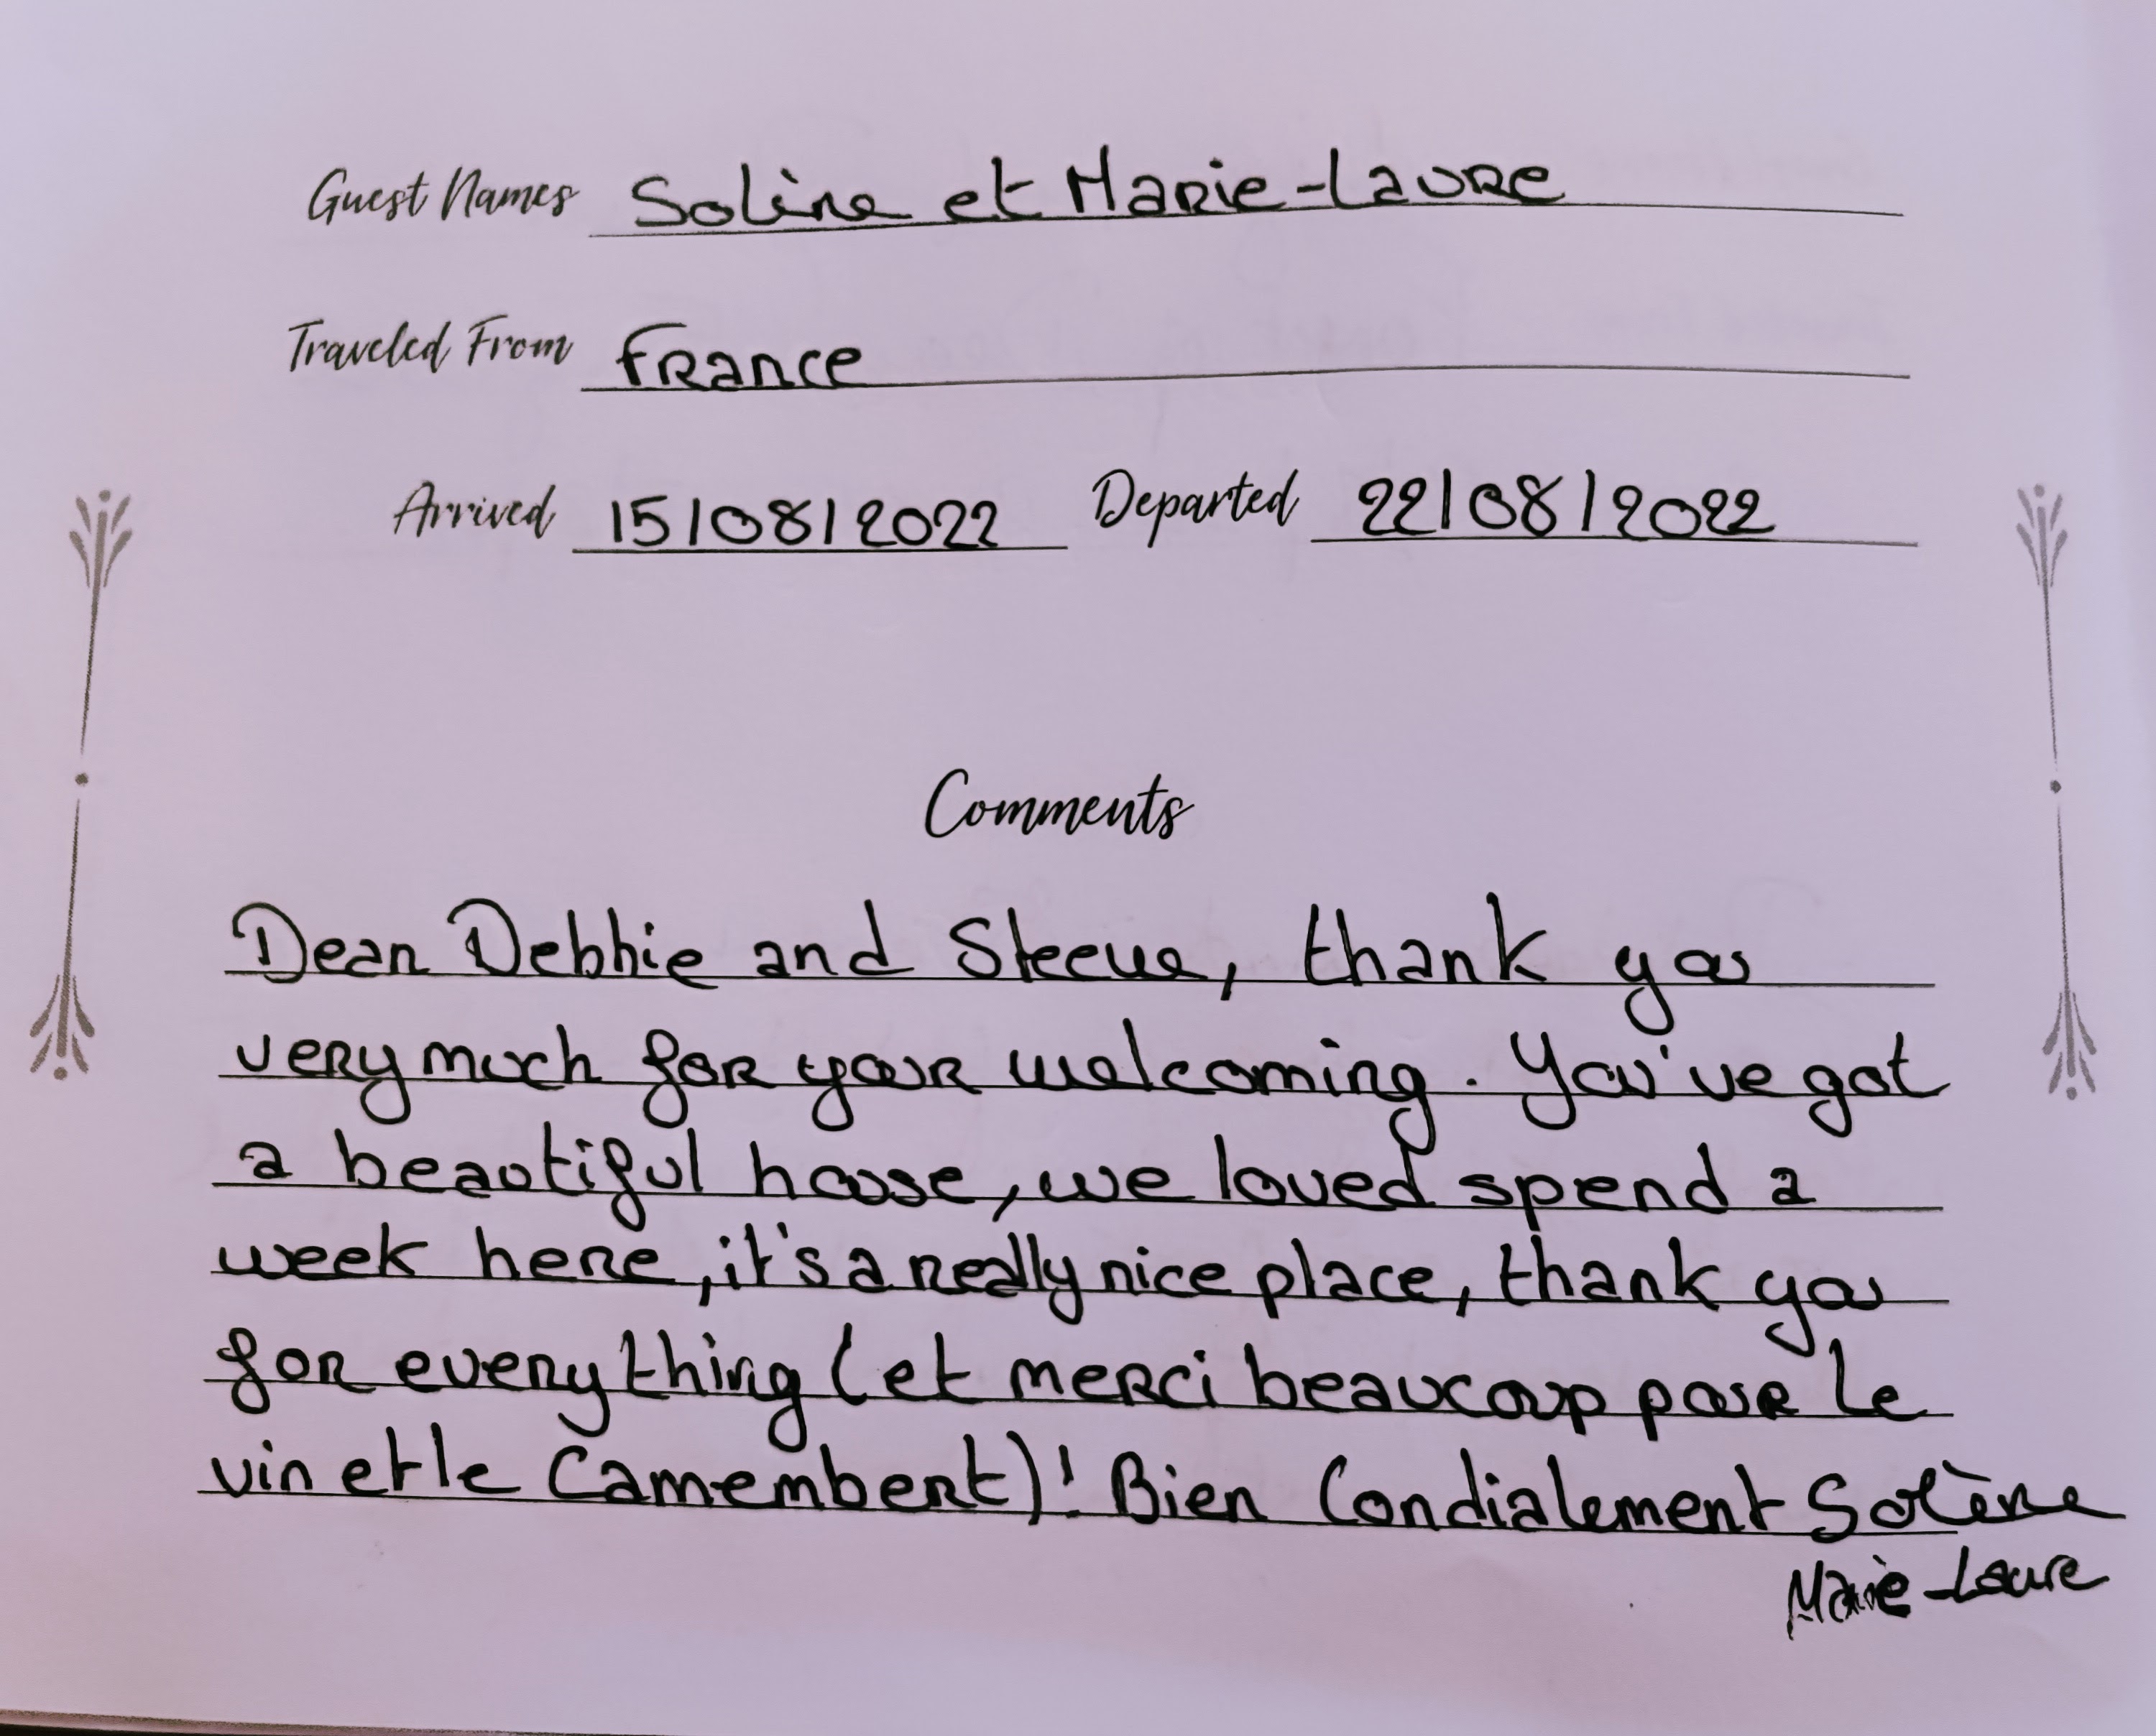 Guest Names Solène et Marie-Laure
Traveled From France
Arrived 15/08/2022 Departed 22/08/2022
Comments
Dear Debbie and Steeve, thank you
very much for your welcoming. You've got
a beautiful house, we loved spend a
week here, it's a really nice place, thank you
for everything (et merci beaucoup pour le
vin et le Camembert)! Bien Cordialement Solène
Marie-Laure